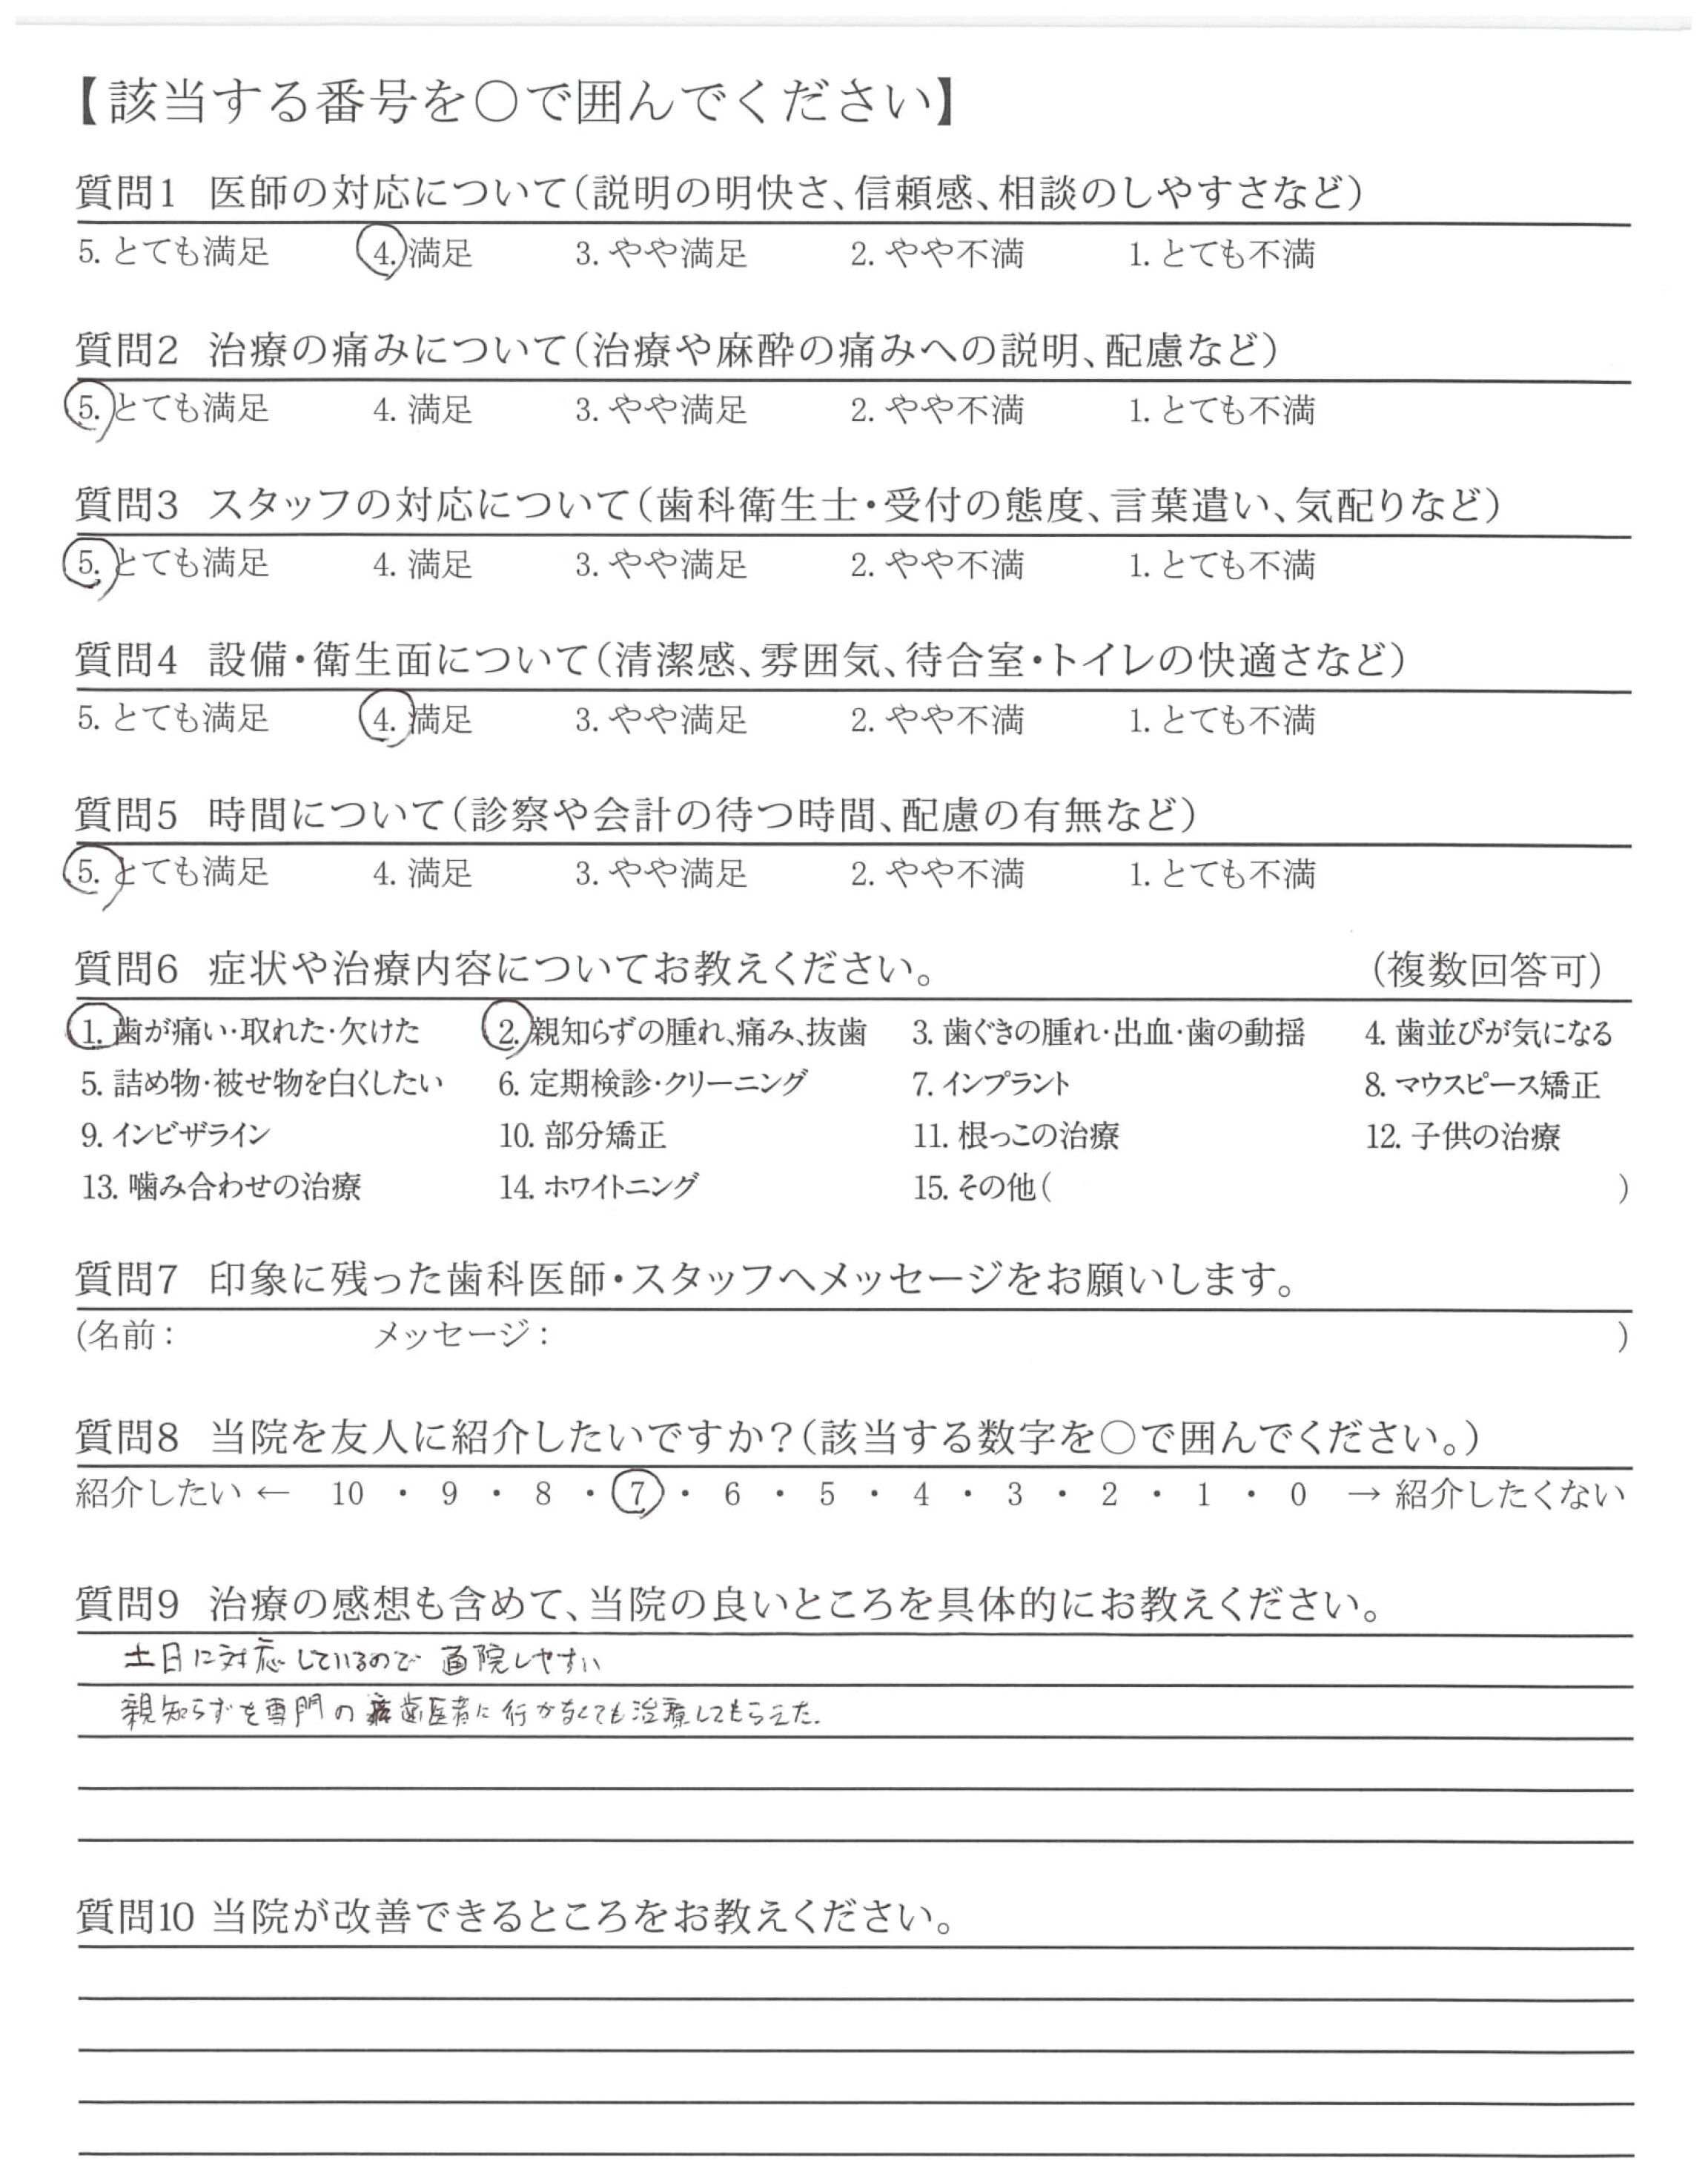 【該当する番号を○で囲んでください】
質問1 医師の対応について(説明の明快さ、信頼感、相談のしやすさなど)
5. とても満足 4. 満足 3. やや満足 2. やや不満 1. とても不満
質問2 治療の痛みについて(治療や麻酔の痛みへの説明、配慮など)
5. とても満足 4. 満足 3. やや満足 2. やや不満 1. とても不満
質問3 スタッフの対応について(歯科衛生士・受付の態度、言葉遣い、気配りなど)
5. とても満足 4. 満足 3. やや満足 2. やや不満 1. とても不満
質問4 設備・衛生面について(清潔感、雰囲気、待合室・トイレの快適さなど)
5. とても満足 4. 満足 3. やや満足 2. やや不満 1. とても不満
質問5 時間について(診察や会計の待つ時間、配慮の有無など)
5. とても満足 4. 満足 3. やや満足 2. やや不満 1. とても不満
質問6 症状や治療内容についてお教えください。 (複数回答可)
1. 歯が痛い・取れた・欠けた 2. 親知らずの腫れ、痛み、抜歯 3. 歯ぐきの腫れ・出血・歯の動揺 4. 歯並びが気になる
5. 詰め物・被せ物を白くしたい 6. 定期検診・クリーニング 7. インプラント 8. マウスピース矯正
9. インビザライン 10. 部分矯正 11. 根っこの治療 12. 子供の治療
13. 噛み合わせの治療 14. ホワイトニング 15. その他( )
質問7 印象に残った歯科医師・スタッフへメッセージをお願いします。
(名前: メッセージ: )
質問8 当院を友人に紹介したいですか?(該当する数字を○で囲んでください。)
紹介したい ← 10 ・ 9 ・ 8 ・ 7 ・ 6 ・ 5 ・ 4 ・ 3 ・ 2 ・ 1 ・ 0 → 紹介したくない
質問9 治療の感想も含めて、当院の良いところを具体的にお教えください。
土日に対応しているので 通院しやすい
親知らずを専門の歯医者に行かなくても治療してもらえた.
質問10 当院が改善できるところをお教えください。